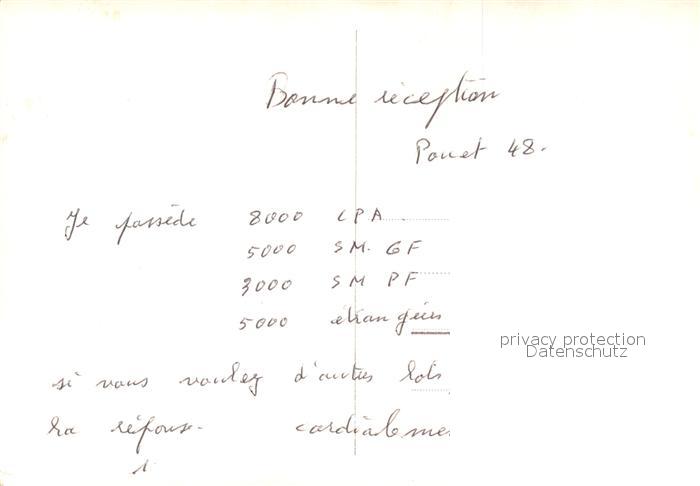 Bonne réception
Pouet 48.
Je possède 8000 CPA
5000 SM. GF
3000 SM PF
5000 étrangères
si vous voulez d'autres lots
La réponse. cordialeme
privacy protection
Datenschutz